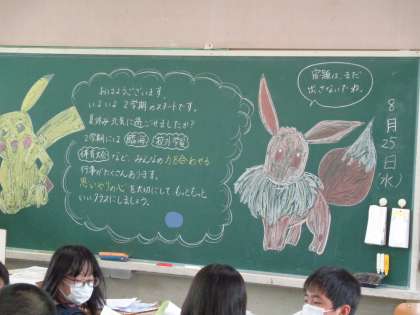 おはようございます。
いよいよ2学期のスタートです。
夏休み元気に過ごせましたか?
2学期には 臨海 校外学習
体育大会 など、みんなの力を合わせる
行事がたくさんあります。
思いやりの心 を大切にして もっともっと
いいクラスにしましょう。
宿題は、まだ
出さないでね。
8月25日(水)